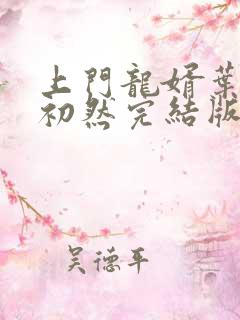 上門龍婿葉
初然完結版
吴德平